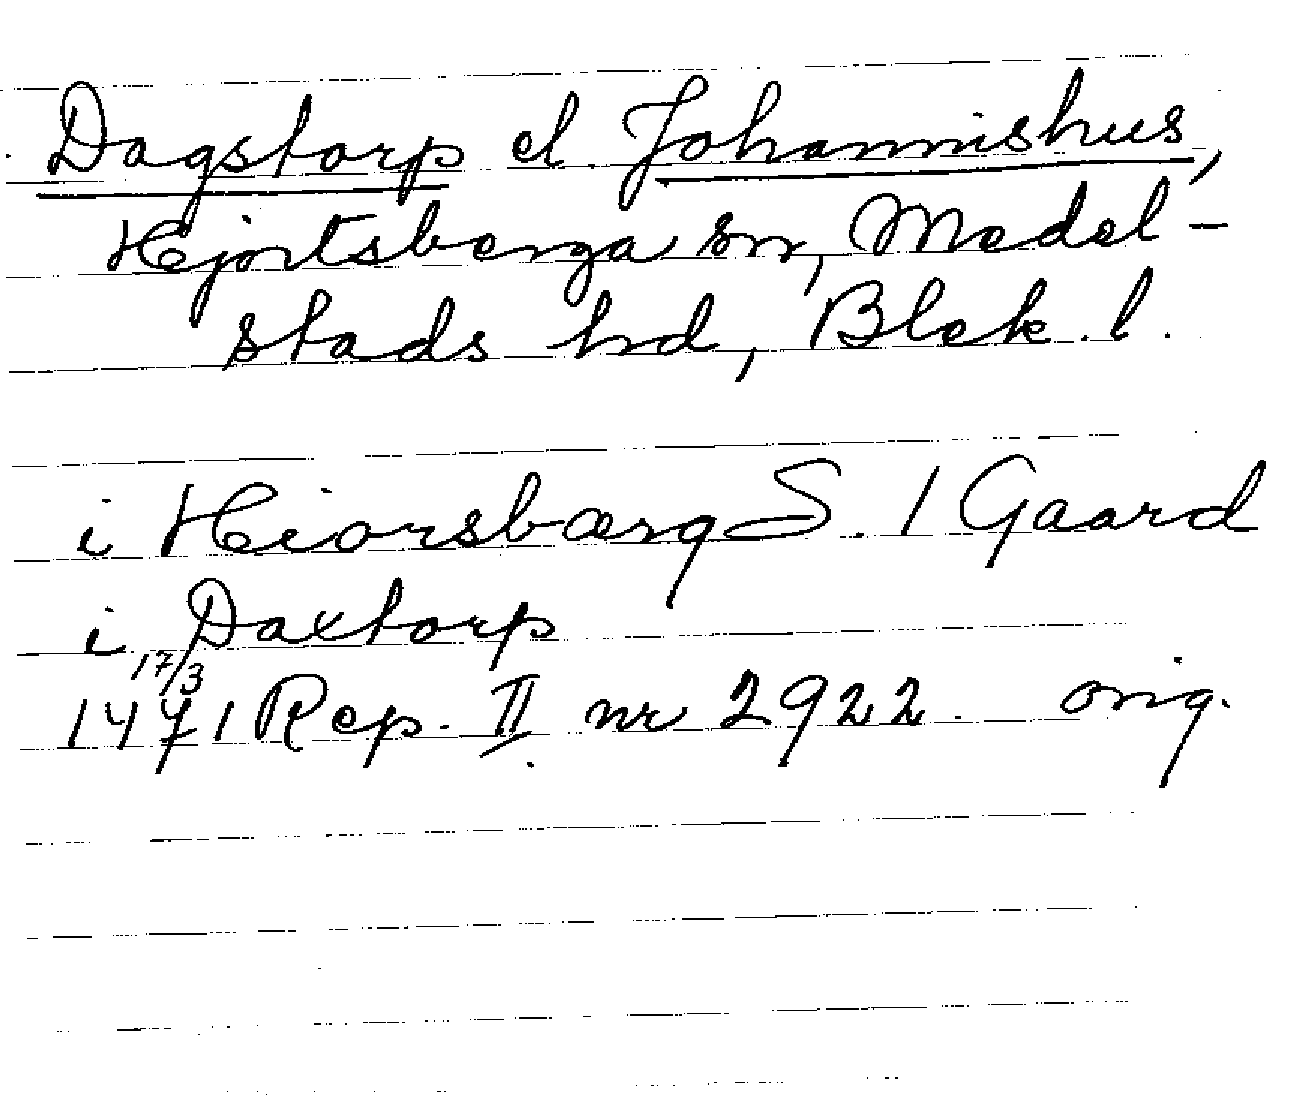 Dagstorp el. Johannishus,
Hjortsberga sn, Medel-
stads hd, Blek. l.
i Hiorsbærg S. 1 Gaard
i Daxtorp
17/3
1471 Rep. II nr 2922. orig.